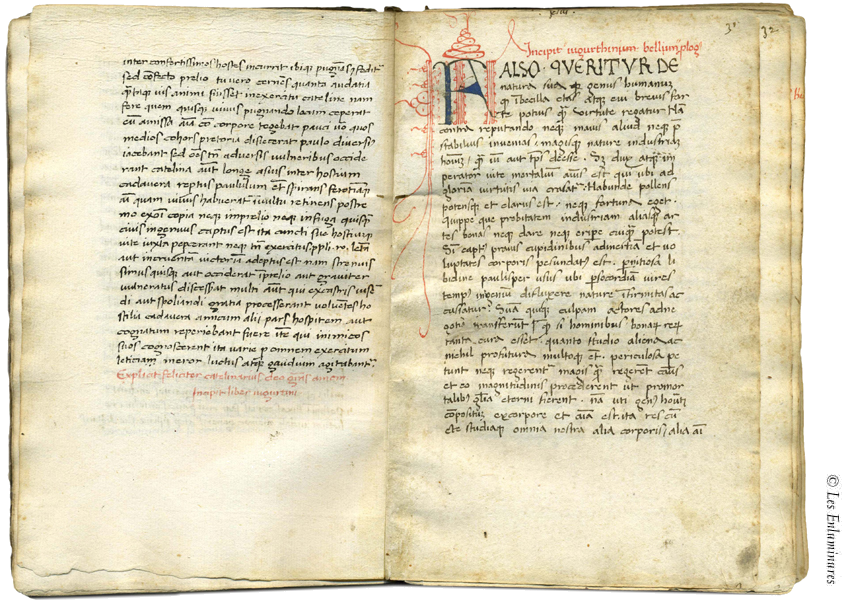 inter confertissimos hostes incurrit ibiq; pugnans c̄feditr̄
sed cōfecto prelio tu vero cernēs quanta audatia
q̄tāq; uis animi fuisset in exercitu catiline nam
fere quem quisq; uiuus pugnando locum ceperat
eū amissa aīa cō corpore togebat pauci uō quos
medios cohors pretoria disiecerat paulo diuersi
iacebant sed oēs tn̄ aduersis uulneribus occide
rant catelina aut longe a suis inter hostium
cadauera reptus paululum et spirans ferotiaq;
aī quam uiuus habuerat ī uultu retinens postre
mo ex oī copia neq; in prelio neq; in fuga quisq̄
ciuis ingenuus captus est ita cuncti sue hostiūq;
uite iuxta peperant neq; tn̄ exercitus ppli . ro . letā
aut incruentā uictoria adeptus est nam strenuis
simus quisq; aut occiderat ī prelio aut grauiter
uulneratus discesserat multi aūt qui ex castris uise
di aut spoliandi gratia processerant uoluētes ho
stilia cadauera amicum alii pars hospitem aut
cognatum reperiebant fuere itē qui inimicos
suos cognoscerent ita uarie p omnem exercitum
leticiam meror luctus atq; gaudium agitabant᷒
Explicit feliciter catelinarius deo grās amem
Incipit liber iugurtini
xiiii
31 32
Incipit iugurthinum bellum
FALSO · QVERITVR DE
natura sua genus humanum
q̄ ībecilla etas atq; eui breuis for
te potius q̄ uirtute regatur Nā
contra reputando neq; maius aliud neq; p
stabilius inuenias magisq; nature industriam
houm̄ q̄ uī aut tp̄s deesse . Sz dux atq; im
perator uite mortalium aīus est qui ubi ad
gloriā uirtutis uia crasat᷒ . Habunde pollens
potensq; et clarus est . neq; fortuna eget .
quippe que probitatem industriam aliasq; ar
tes bonas neq; dare neq; eripe cuiq̄ potest .
Si capt᷒ prauis cupidinibus ad inertiā et uo
luptates corporis pesundat᷒ est . pnitiosa li
bidine paulisper usus ubi p socordiam uires
temp᷒ ingenium difluxere nature īfirmitas ac
cusatur . Sua quisq; culpam actores ad ne
gotia transferūt q̄ si hominibus bonaꝝ reꝝ
tanta cura esset . quanto studio aliena ac
nichil profutura multoq; et . periculosa pe
tunt neq; regerent᷒ magis q̄ regeret casus
et eo magnitudinis procederent ut pro mor
talib᷒ glia eterni fierent . nā uti gen᷒ houm̄
cōpositū ex corpore et aīa est . ita res cū
cte studiaq; omnia nostra alia corporis alia aī
© Les Enluminures